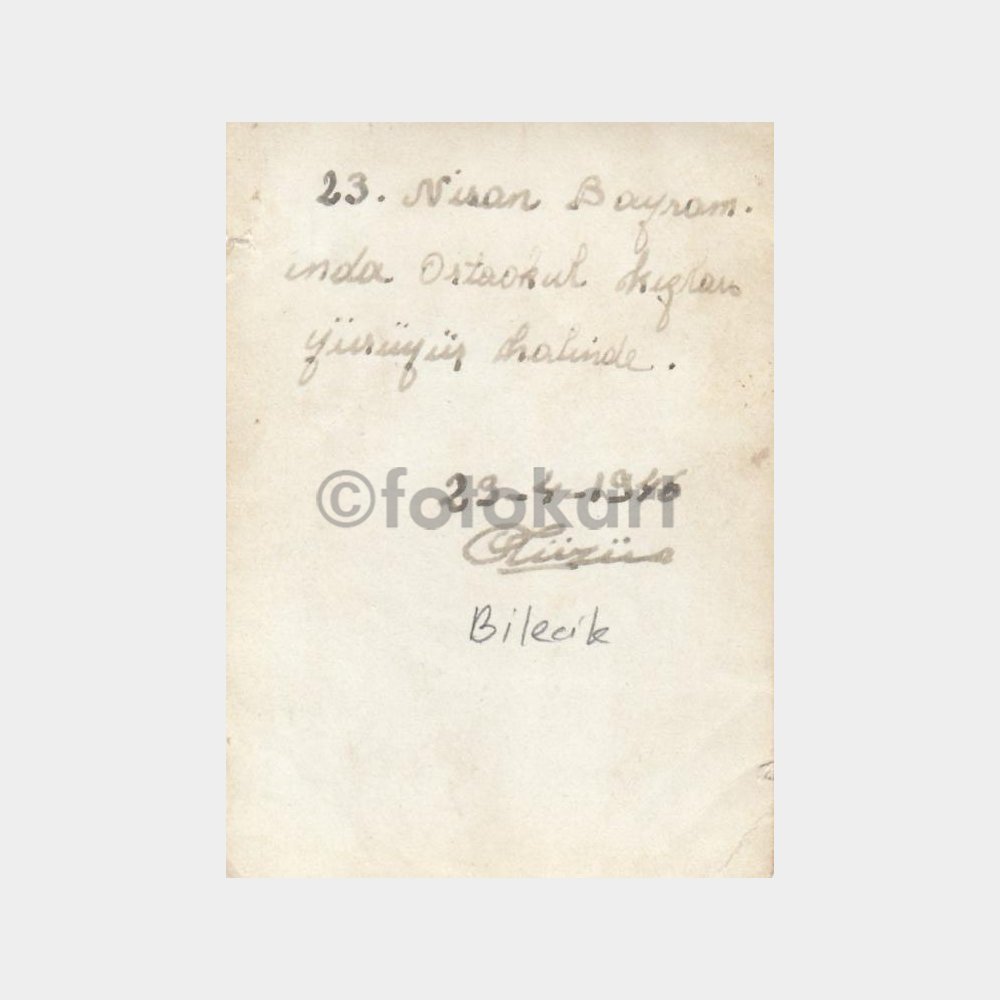 23. Nisan Bayram.
ında Ortaokul kızları
yürüyüş halinde.
©fotokart
23-4-1946
Bilecik